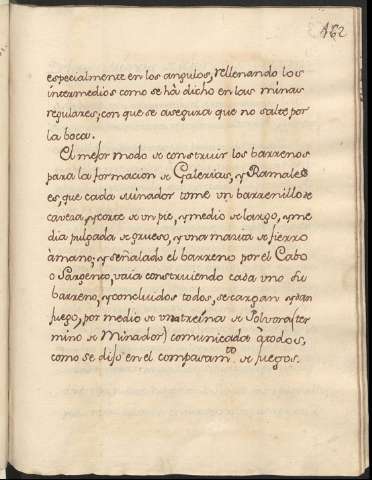 162
especialmente en los angulos, rellenando los
intermedios como se há dicho en las minas
regulares; con que se asegura que no salte por
la boca.
El mejor modo de construir los barrenos
para la formacion de Galerias, y Ramales
es, que cada minador tome un barrenillo de
cavera, y corte de un pie, y medio de largo, y me
dia pulgada de grueso, y una marita de fierro
àmano; y señalado el barreno por el Cabo
o Sargento, vaia construiendo cada uno su
barreno, y concluidos todos, se cargan y dan
fuego, por medio de una treina de Polvora (ter
mino de Minador) comunicada à todos,
como se dijo en el compasam.to de fuegos.